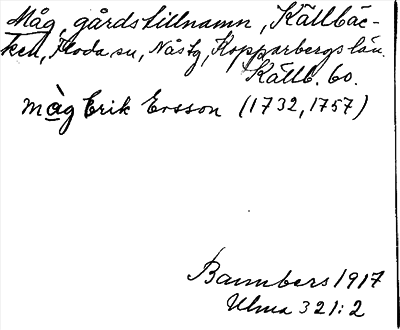 Måg, gårdstillnamn, Källbäc-
ken, Floda sn, Nås tg, Kopparbergs län.
Källb. 60.
Måg Erik Ersson (1732, 1757)
Bannbers 1917
Ulma 321:2